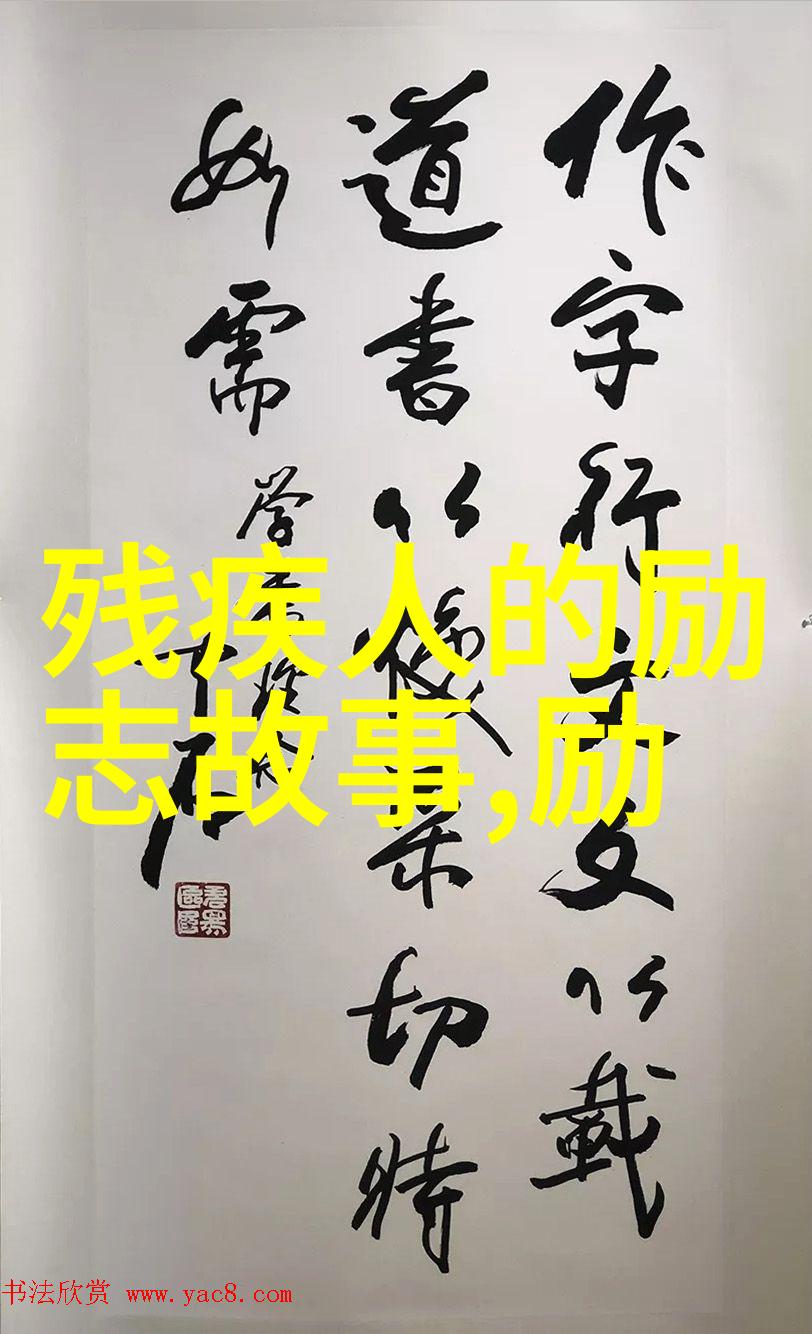 作字行文文以載
道書以焕采切時
如需
残疾人的励
志故事,励
书法欣赏 www.yac8.com